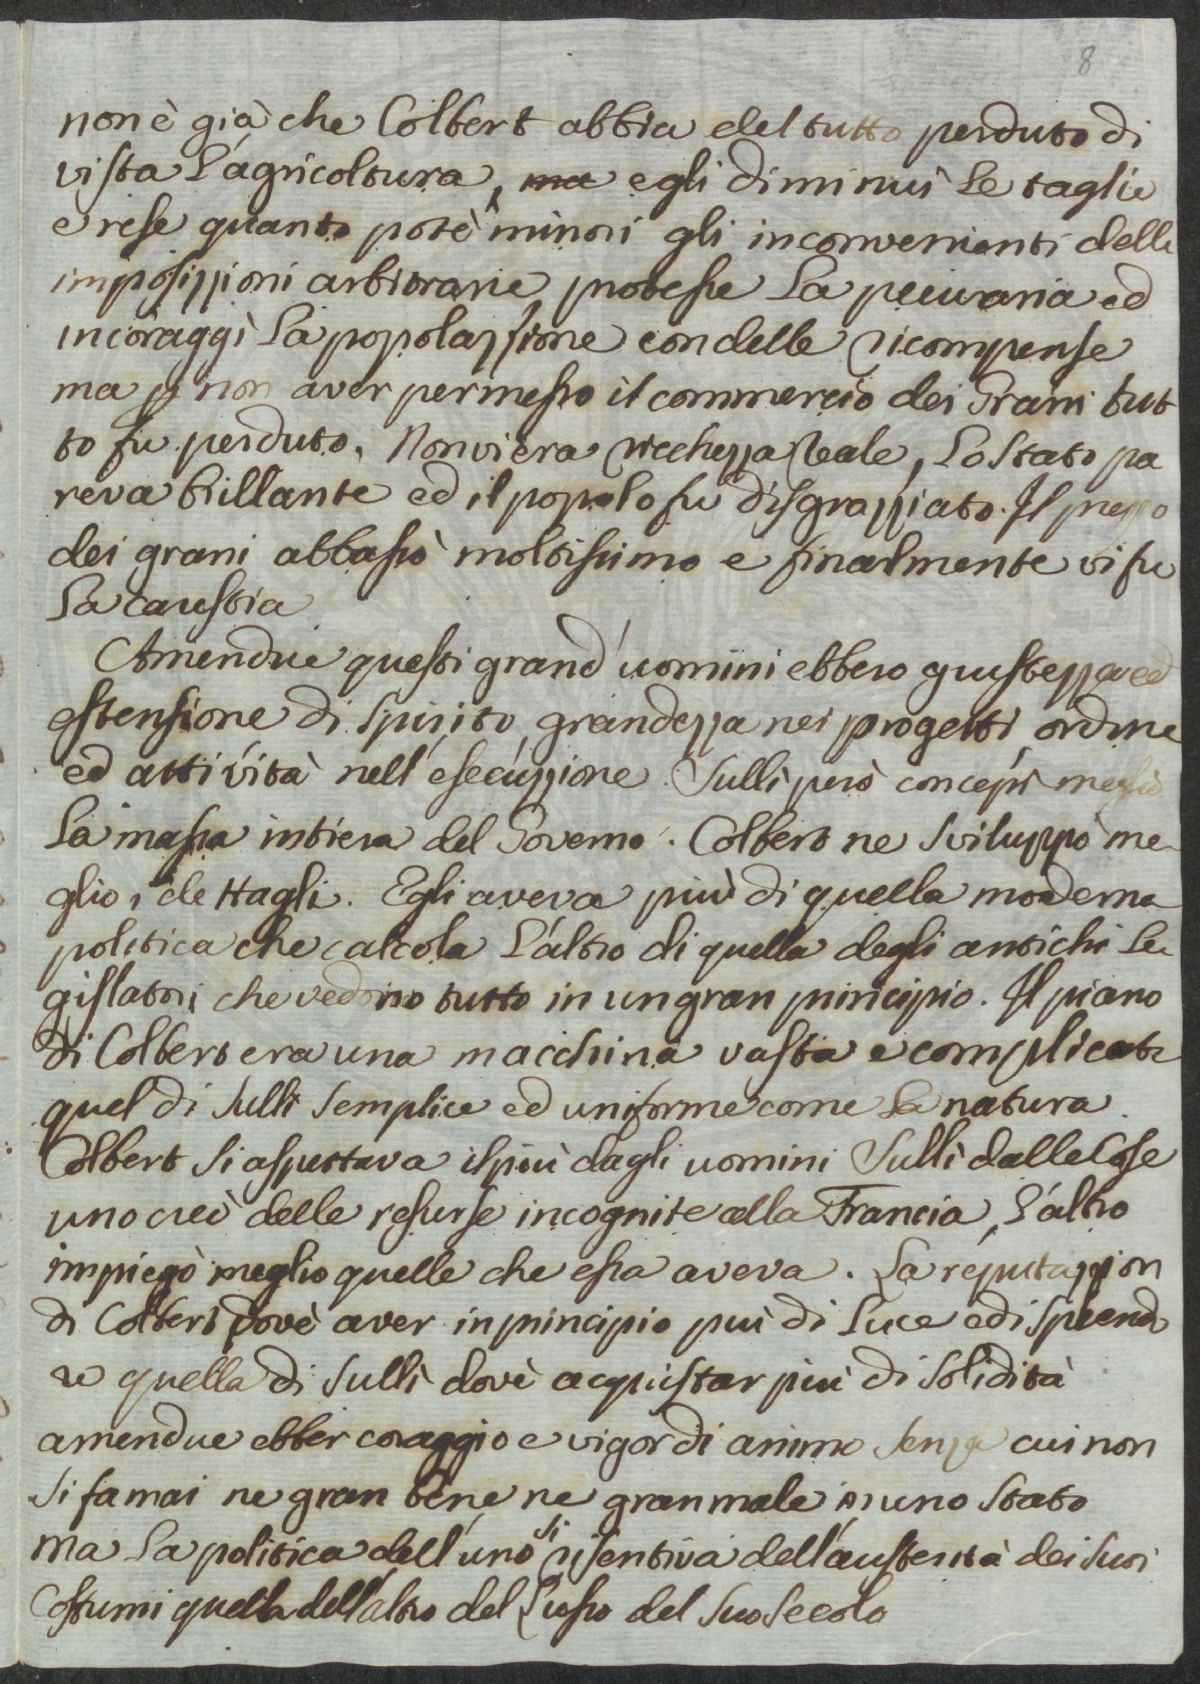 8
non è già che Colbert abbia del tutto perduto di
vista l'agricoltura, ma egli diminuì le taglie
e rese quanto potè minori gli inconvenienti delle
imposizzioni arbitrarie protesse la pecuraria ed
incoraggì la popolazzione con delle ricompense
ma p non aver permesso il commercio dei Grani tut
to fu perduto. Non vi era ricchezza reale, lo Stato pa
reva brillante ed il popolo fu disgrazziato. Il prezzo
dei grani abbassò moltissimo e finalmente vi fu
la carestia
Amendue questi grand'uomini ebbero giustezza ed
estensione di spirito, grandezza nei progetti, ordine
ed attività nell'esecuzzione. Sullì però concepì meglio
la massa intiera del Governo. Colbert ne sviluppò me
glio i dettagli. Egli aveva più di quella moderna
politica che calcola l'altro di quella degli antichi le
gislatori che vedono tutto in un gran principio. Il piano
di Colbert era una macchina vasta e complicata
quel di Sullì semplice ed uniforme come la natura.
Colbert si aspettava il più dagli uomini Sullì dalle Cose
uno creò delle resurse incognite alla Francia, l'altro
impiegò meglio quelle che essa aveva. La reputazzion
di Colbert dovè aver in principio più di luce e di splendo
re quella di Sullì dovè acquistar più di solidità
amendue ebber coraggio e vigor di animo senza cui non
si fa mai ne gran bene ne gran male in uno Stato
ma la politica dell'uno si risentiva dell'austerità dei suoi
Costumi quella dell'altro del lusso del suo secolo